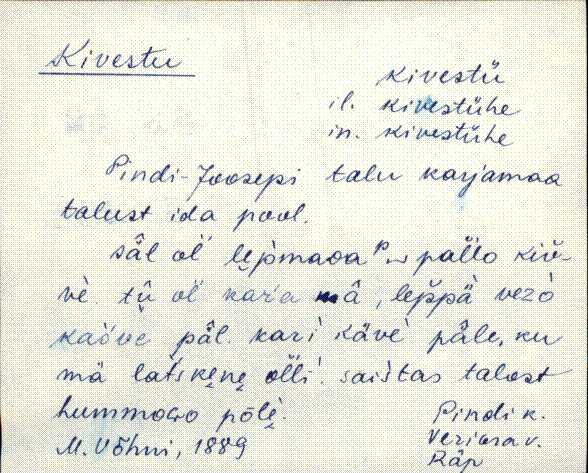 Kivestu
kivestü
il. kivestühe
in. kivestühe
Pindi-Joosepi talu karjamaa
talust ida pool.
säl ol' pallo
kaŕa mâ, leppä vezò
päl. kari kävè päle, ku
mä latskene olli. saistas talost
hummogo pòlè.
M. Võhni, 1889
Pindi k.
Veriora v.
Räp